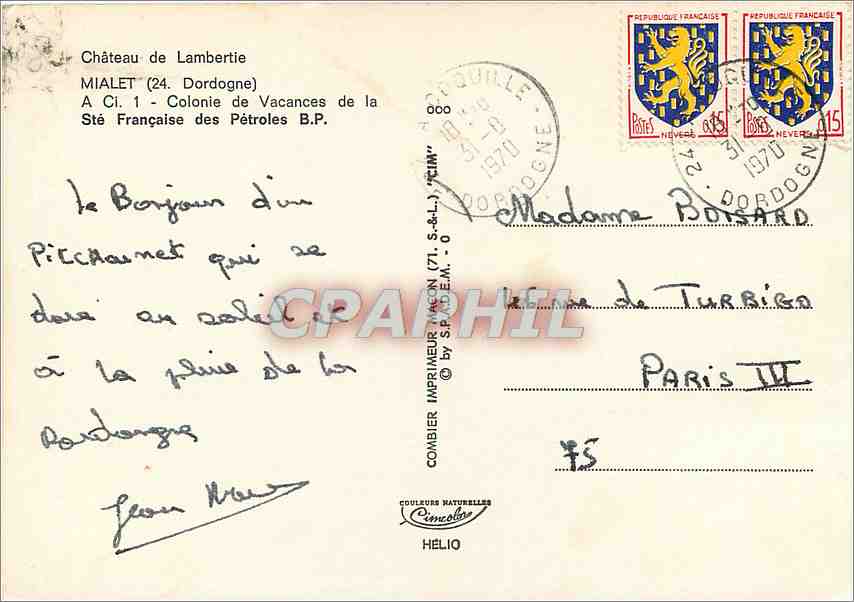 Château de Lambertie
MIALET (24. Dordogne)
A Ci. 1 - Colonie de Vacances de la
Sté Française des Pétroles B.P.
Le Bonjour d'un
Pitchounet qui se
dore au soleil et
à la pluie de la
Dordogne
Jean Marc
COMBIER IMPRIMEUR MACON (71. S.-&-L.) "CIM"
© by S.P.A.D.E.M. - 0
88
COULEURS NATURELLES
Cimcolor
HÉLIO
RÉPUBLIQUE FRANÇAISE
POSTES 0,15
NEVERS
RÉPUBLIQUE FRANÇAISE
POSTES 15
NEVERS
COQUILLE
18
31 - 8
1970
DORDOGNE
24
31 - 8
1970
DORDOGNE
Madame BOISARD
46 rue de TURBIGO
PARIS III
75
CPAPHIL